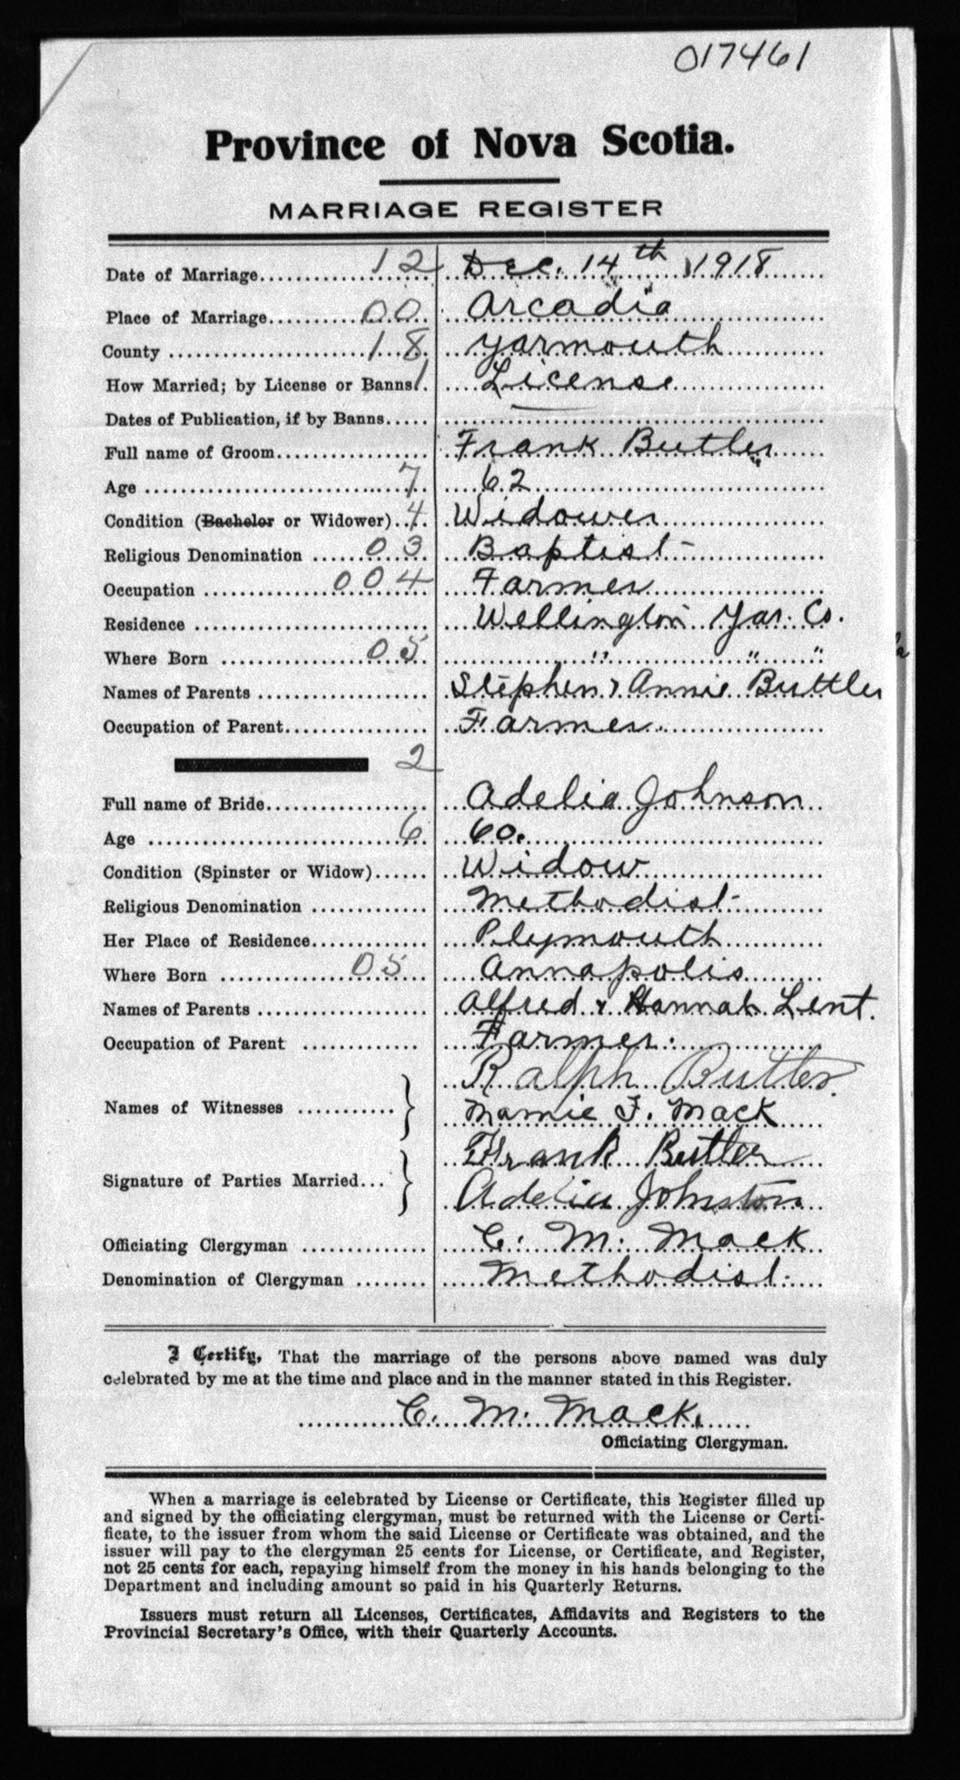 017461
Province of Nova Scotia.
MARRIAGE REGISTER
Date of Marriage.......... 12 Dec. 14th, 1918
Place of Marriage.......... 00 Arcadia
County .......... 18 Yarmouth
How Married; by License or Banns 1. License
Dates of Publication, if by Banns.....
Full name of Groom.......... Frank Butler
Age .......... 7 62
Condition (Bachelor or Widower).. 4 Widower
Religious Denomination ...... 03 Baptist
Occupation .......... 004 Farmer
Residence .......... Wellington Yar. Co.
Where Born .......... 05 " " "
Names of Parents .......... Stephen & Annie Buttler
Occupation of Parent.......... Farmer
2
Full name of Bride.......... Adelia Johnson
Age .......... 6 60.
Condition (Spinster or Widow)...... Widow
Religious Denomination .......... Methodist
Her Place of Residence.......... Plymouth
Where Born .......... 05 Annapolis
Names of Parents .......... Alfred & Hannah Lent.
Occupation of Parent .......... Farmer.
Ralph Butler
Names of Witnesses ..........
Mamie F. Mack
Frank Butler
Signature of Parties Married...
Adelia Johnston
Officiating Clergyman .......... C. M. Mack
Denomination of Clergyman ........ Methodist.
I Certify, That the marriage of the persons above named was duly
celebrated by me at the time and place and in the manner stated in this Register.
C. M. Mack.
Officiating Clergyman.
When a marriage is celebrated by License or Certificate, this Register filled up
and signed by the officiating clergyman, must be returned with the License or Certi-
ficate, to the issuer from whom the said License or Certificate was obtained, and the
issuer will pay to the clergyman 25 cents for License, or Certificate, and Register,
not 25 cents for each, repaying himself from the money in his hands belonging to the
Department and including amount so paid in his Quarterly Returns.
Issuers must return all Licenses, Certificates, Affidavits and Registers to the
Provincial Secretary's Office, with their Quarterly Accounts.